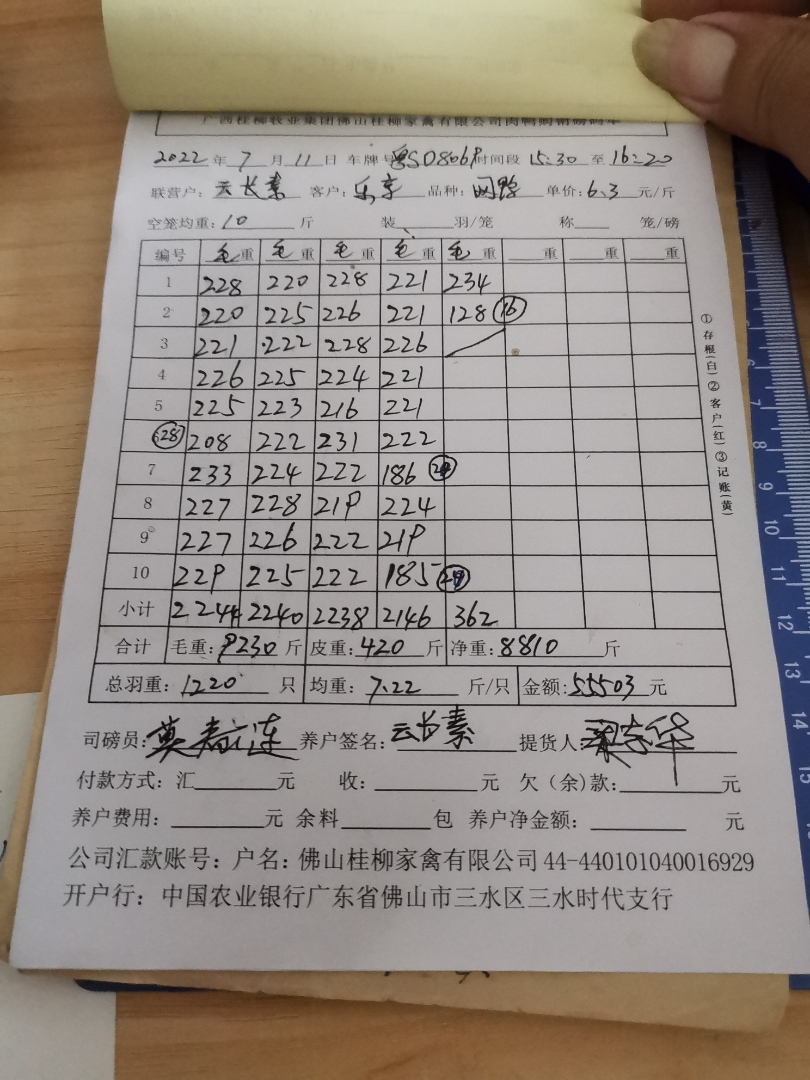 广西桂柳牧业集团佛山桂柳家禽有限公司肉鸭购销磅码单
2022 年 7 月 11 日 车牌号 粤SD8069 时间段 15:30 至 16:20
联营户: 云长素 客户: 乐享 品种: 单价: 6.3 元/斤
空笼均重: 10 斤 装 羽/笼 称 笼/磅
编号 毛重 毛重 毛重 毛重 毛重 重 重 重
1 228 220 228 221 234
2 220 225 226 221 128 16
3 221 222 228 226
4 226 225 224 221
5 225 223 216 221
6 28 208 222 231 222
7 233 224 222 186
8 227 228 219 224
9 227 226 222 219
10 229 225 222 185
小计 2244 2240 2238 2146 362
合计 毛重: 9230 斤 皮重: 420 斤 净重: 8810 斤
总羽重: 1220 只 均重: 7.22 斤/只 金额: 55503 元
司磅员: 养户签名: 云长素 提货人:
付款方式: 汇 元 收: 元 欠(余)款: 元
养户费用: 元 余料 包 养户净金额: 元
公司汇款账号: 户名: 佛山桂柳家禽有限公司 44-440101040016929
开户行: 中国农业银行广东省佛山市三水区三水时代支行
①存根(白)②客户(红)③记账(黄)
6
7
8
9
10
11
12
13
14
15